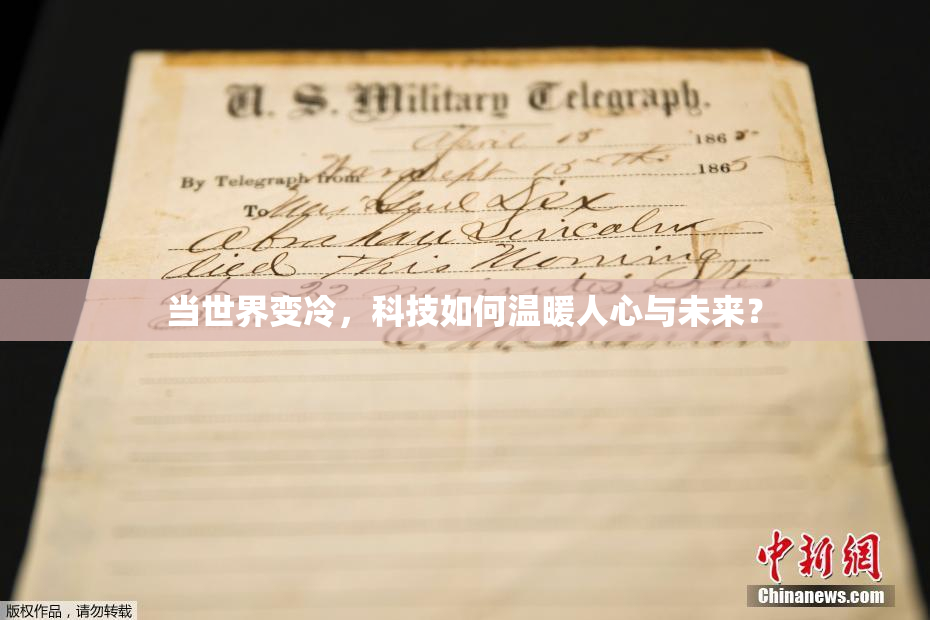 U. S. Military Telegraph.
April 15 1865
By Telegraph from War Dept 15th 1865
To Maj Genl Dix
Abraham Lincoln
died This Morning
at 22 minutes after
当世界变冷，科技如何温暖人心与未来？
E. M. Stanton
中新网
Chinanews.com
版权作品，请勿转载